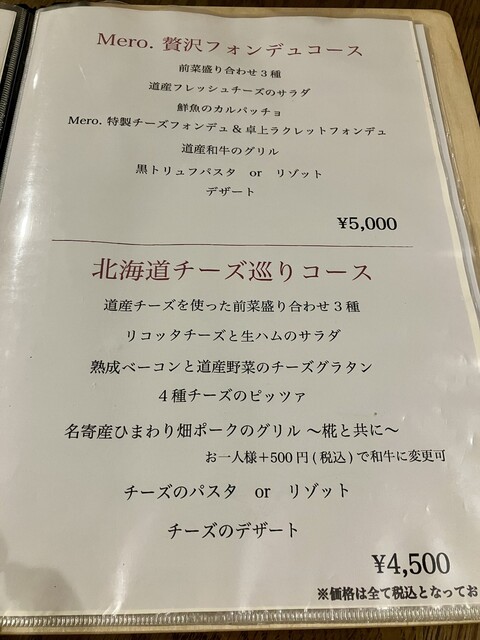 Mero. 贅沢フォンデュコース
前菜盛り合わせ３種
道産フレッシュチーズのサラダ
鮮魚のカルパッチョ
Mero. 特製チーズフォンデュ & 卓上ラクレットフォンデュ
道産和牛のグリル
黒トリュフパスタ or リゾット
デザート
¥5,000
北海道チーズ巡りコース
道産チーズを使った前菜盛り合わせ３種
リコッタチーズと生ハムのサラダ
熟成ベーコンと道産野菜のチーズグラタン
４種チーズのピッツァ
名寄産ひまわり畑ポークのグリル 〜椛と共に〜
お一人様＋500円(税込)で和牛に変更可
チーズのパスタ or リゾット
チーズのデザート
¥4,500
※価格は全て税込となってお